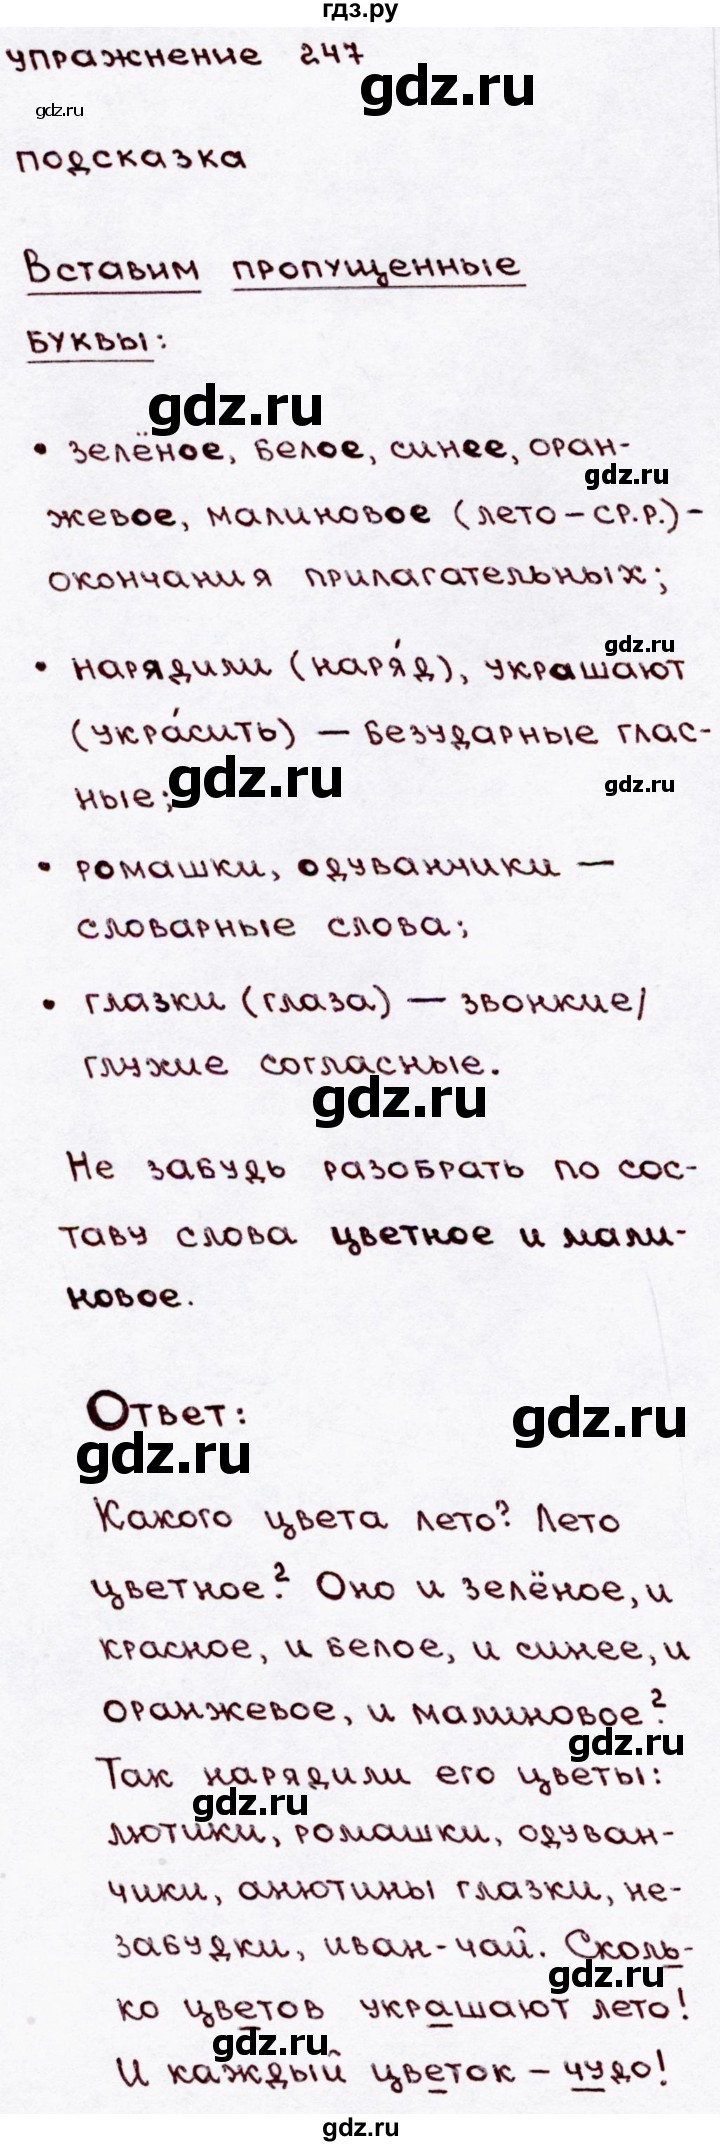 гдз.ру
упражнение 247
gdz.ru
gdz.ru
подсказка
Вставим пропущенные
буквы:
gdz.ru
• зелёное, белое, синее, оран-
gdz.ru
жевое, малиновое (лето – ср.р.) –
окончания прилагательных;
gdz.ru
• нарядили (наря́д), украшают
(укра́сить) – безударные глас-
gdz.ru
gdz.ru
ные;
• ромашки, одуванчики –
словарные слова;
• глазки (глаза) – звонкие/
глухие согласные.
gdz.ru
Не забудь разобрать по сос-
таву слова цветное и мали-
новое.
Ответ:
gdz.ru
gdz.ru
Какого цвета лето? Лето
цветное².  Оно и зелёное, и
красное, и белое, и синее, и
оранжевое, и малиновое².
gdz.ru
Так нарядили его цветы:
gdz.ru
лютики, ромашки, одуван-
чики, анютины глазки, не-
забудки, иван-чай. Сколь-
gdz.ru
ко цветов украшают лето!
gdz.ru
И каждый цветок – чудо!
gdz.ru